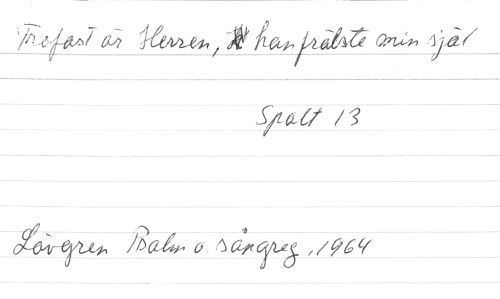 Trefast är Herren, han frälste min själ
Spalt 13
Lövgren Psalm o. sångreg, 1964